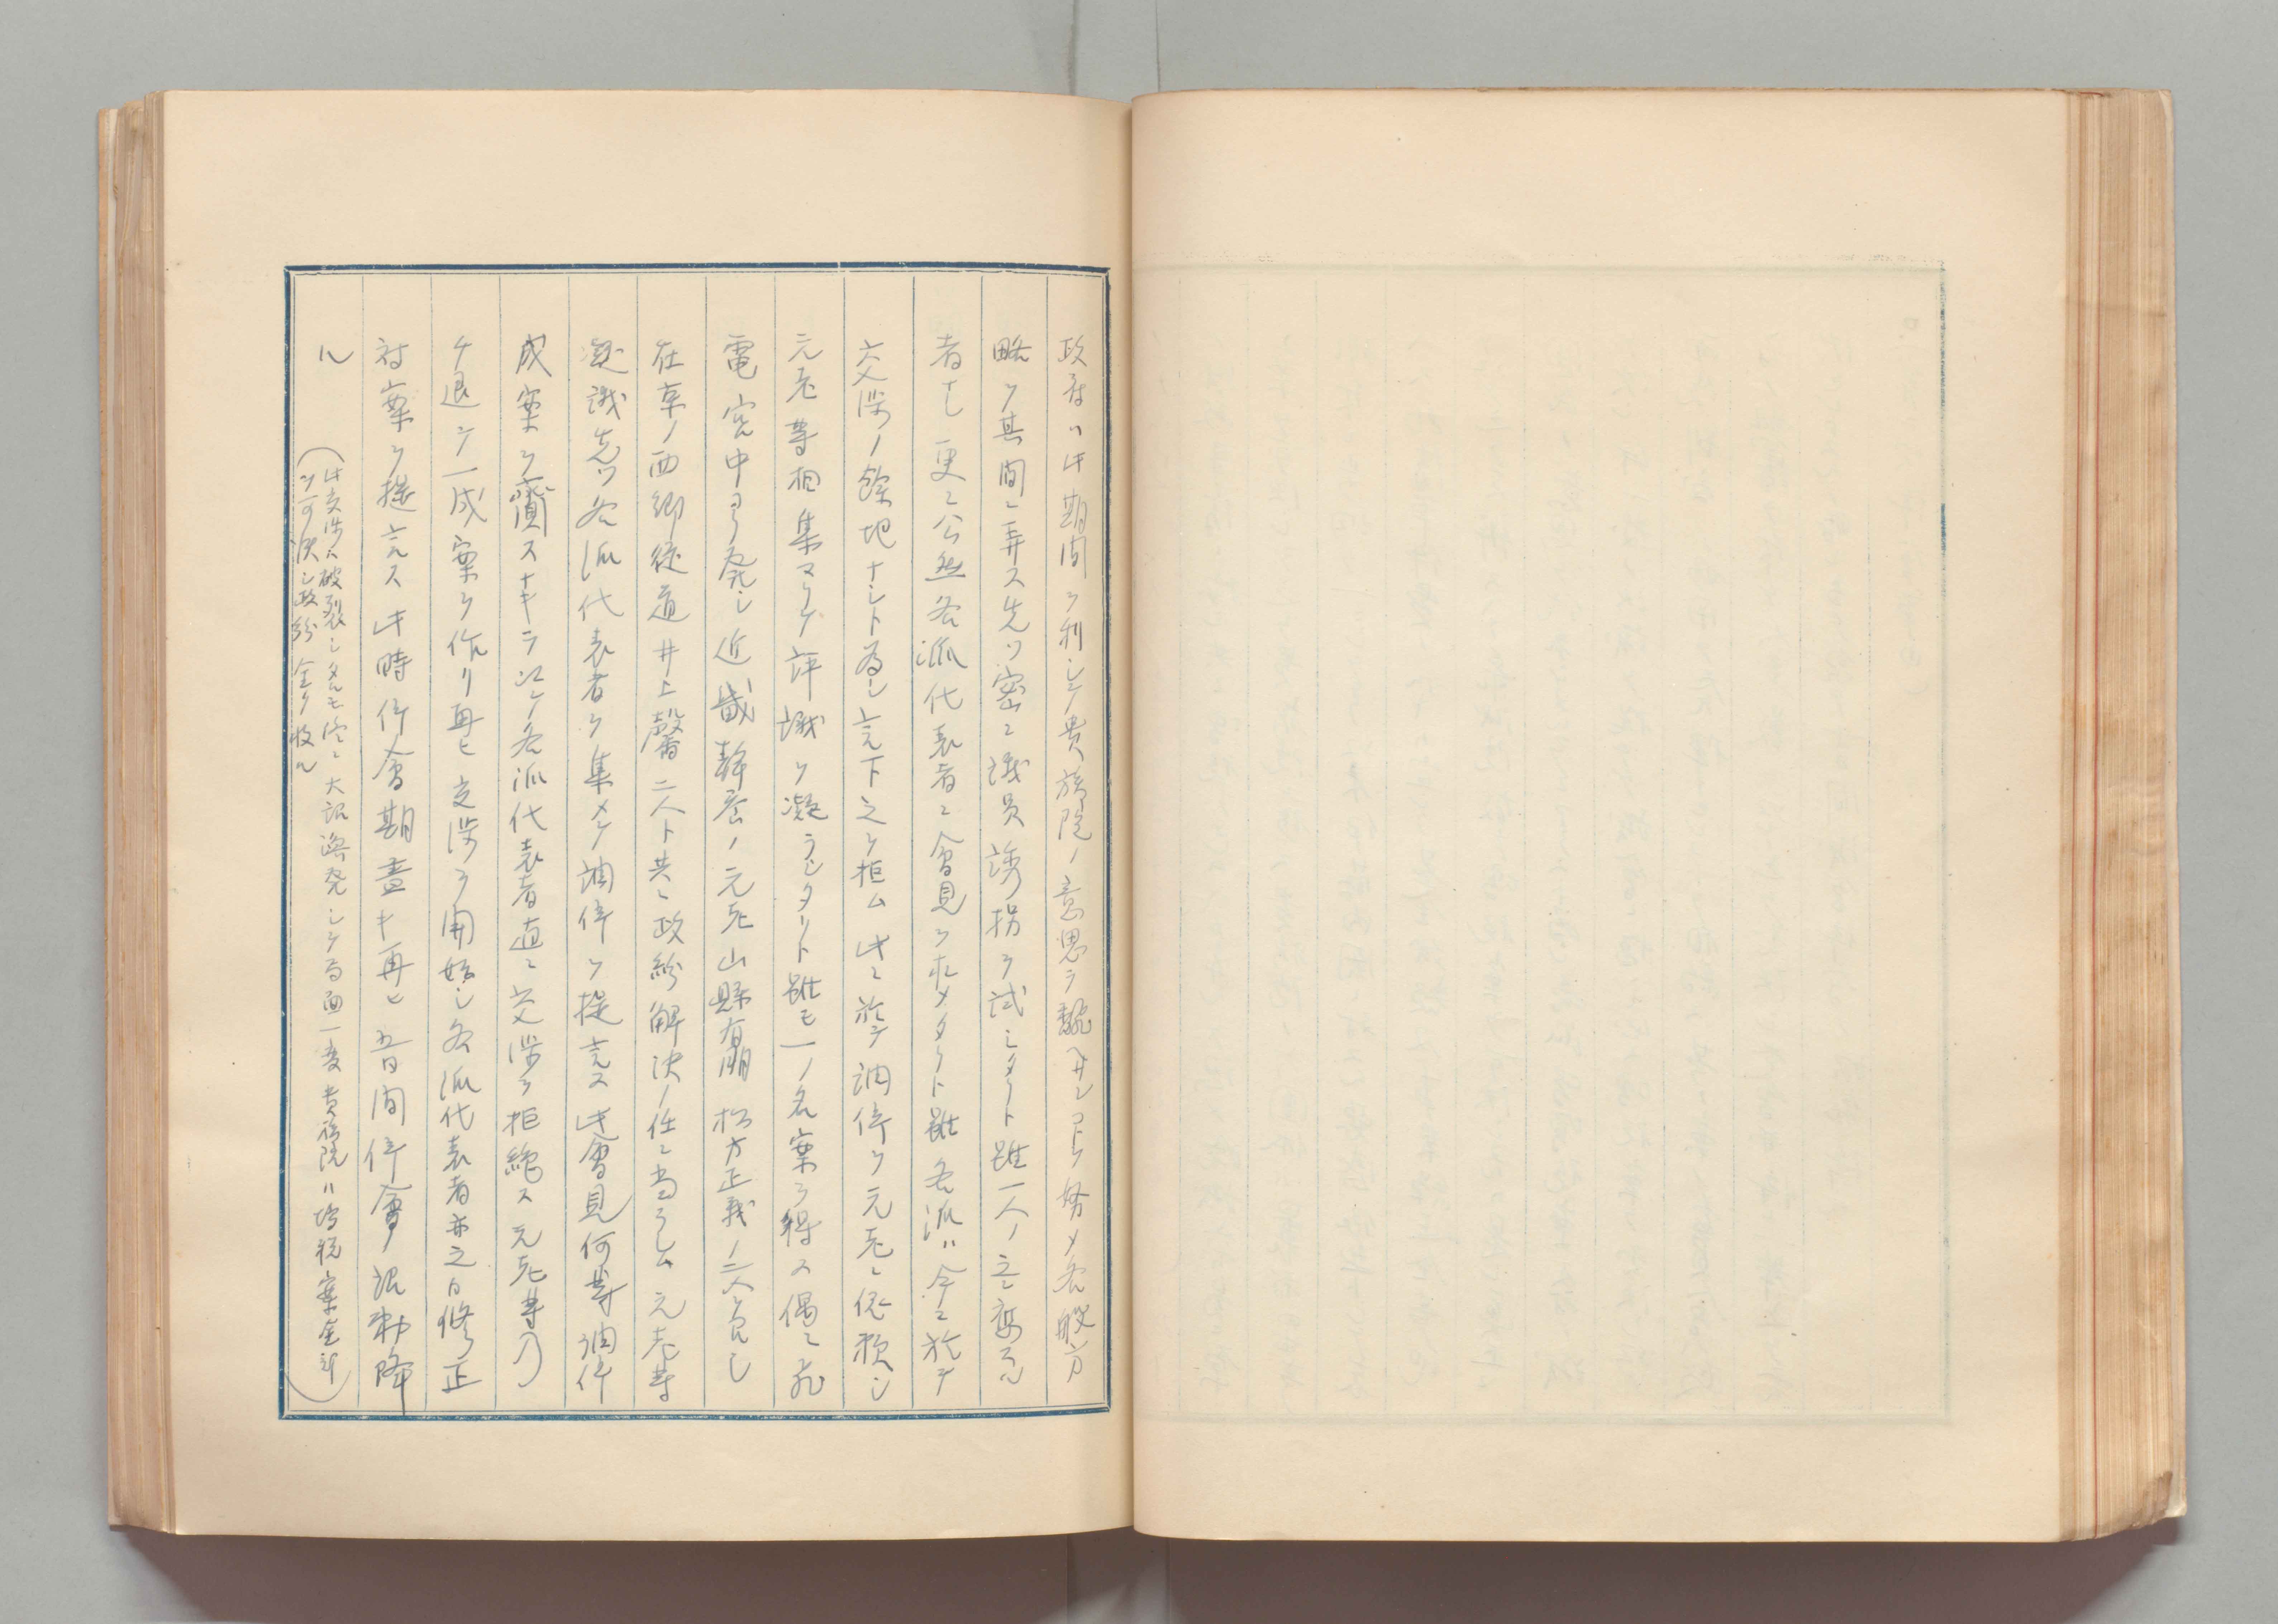 政府ハ此期間ヲ利シテ貴族院ノ意思ヲ飜ヘサンコトヲ努メ各般方
略ヲ其間ニ弄ス先ツ密ニ議員誘拐ヲ試ミタリト雖一人ノ之ニ応スル
者ナシ更ニ公然各派代表者ニ會見ヲ求メタリト雖各派ハ今ニ於テ
交渉ノ餘地ナシト為シ言下之ヲ拒ム此ニ於テ調停ヲ元老ニ依頼シ
元老等相集マリテ評議ヲ凝ラシタリト雖モ一ノ名案ヲ得ス偶ニ飛
電宮中ヨリ発シ近畿静養ノ元老山縣有朋松方正義ノ二人ヲ召シ
在京ノ西郷従道井上馨二人ト共ニ政紛解決ノ任ニ当ラシム元老等
凝議先ツ各派代表者ヲ集メテ調停ヲ提言ス此會見何等調停
成案ヲ齎スナキヲ以テ各派代表者直ニ交渉ヲ拒絶ス元老等乃
チ退テ一成案ヲ作リ再ヒ交渉ヲ開始シ各派代表者亦之カ修正
対案ヲ提言ス此時停會期盡キ再ヒ五日間停會ノ詔勅降
ル
(此交渉ハ破裂シタルモ突ニ大詔渙発シテ局面一変貴族院ハ増税案全部
ヲ可決シ政紛全ク收ル)